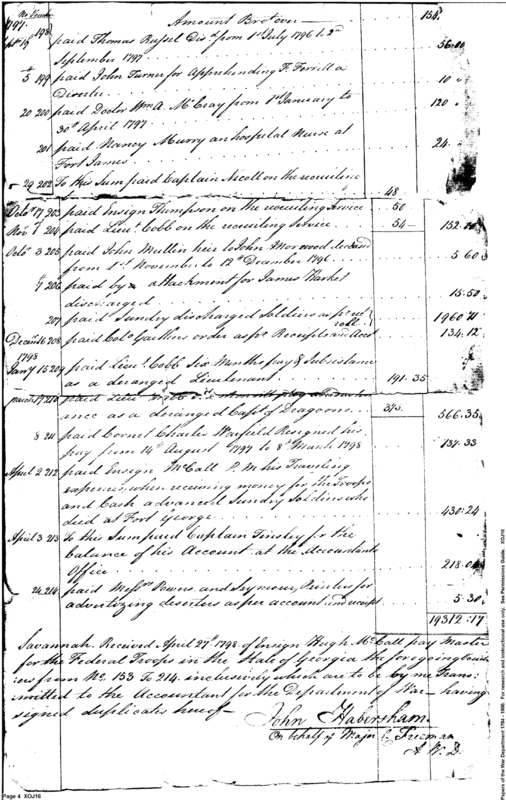 No Vouchr
Amount Brot over
1797.
198 paid Thomas Russel Disd from 1st July 1796 to 2nd
September 1797 56.00
5 199 paid John Turner for Apprehending F. Ferrill a
Diserter 10
20 200 paid Doctor Wm A. McCray from 1st January to
30th April 1797 120
201 paid Nancy Murry an hospital Nurse at
Fort James 24
29 202 To this Sum paid Captain Nicoll on the recruiting
48
Octor 17 203 paid Ensign Thompson on the recruiting Service 50
Novr 1 204 paid Lieut Cobb on the recruiting Service 54 152.00
Octor 3 205 paid John Mullin heir to John Norwood deceased
from 1st November to 12th December 1796 5 60
7 206 paid by attachment for James
discharged 15.50
207 paid Sundry discharged Soldiers as pr roll 1960 71
Decem 16 208 paid Colo Gaithers order as pr Receipts and Acct 134.12
1798
Jany 15 209 paid Lieut Cobb Six Months pay & Subsistance
as a deranged Lieutenant 191.35
210
ance as a deranged Capt of Dragoons 375 566.35
8 211 paid Cornet Charles Warfield Resigned his
pay from 14th August 1797 to 8th March 1798
April 2 212 paid Ensign McCall P. M his Traveling
expences, when receiving money for the Troops
and Cash advanced Sundry Soldiers who
died at Fort George 430.24
April 3 213 To this Sum paid Captain Tinsley for the
balance of his Account at the Accountants
Office 218.0
24 214 paid Messrs Powers and Seymour, Printers for
advertizing deserters as per account and receipt 5.30
19312.17
Savannah. Received April 27th 1798 of Ensign Hugh McCall pay Master
for the Federal Troops in the State of Georgia the foregoing Vouch
ers from No. 153 To 214 inclusively which are to be by me Trans
mitted to the Accountant for the Department of War – having
signed duplicates hereof –
John Habersham
On behalf of Major C Freeman
A. W. D.
Page 4 XOJ16
Papers of the War Department 1784 - 1800. For research and instructional use only. See Permissions Guide. XOJ16